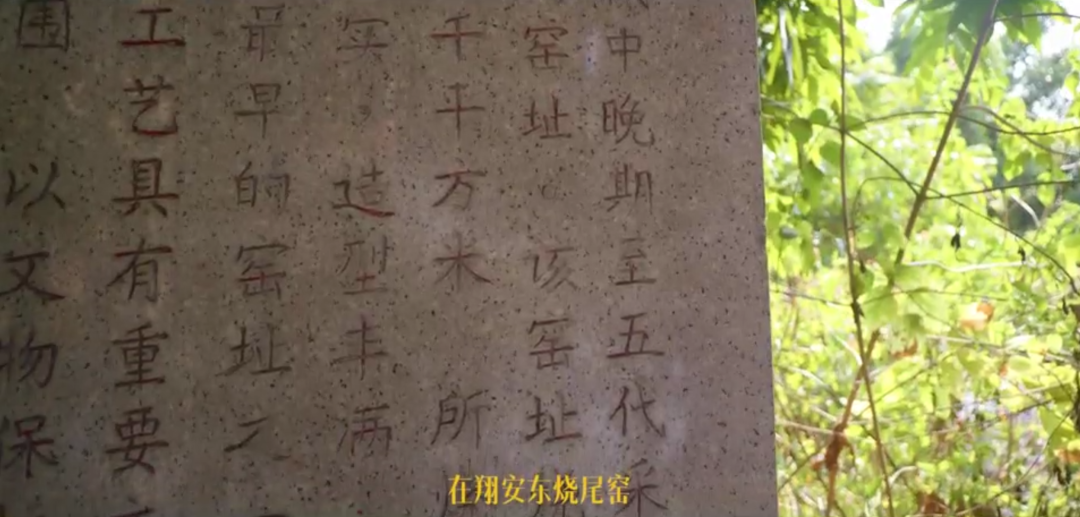 中晚期至五代
窑址 该窑址
千平方米 所
实 造型丰满
最早的窑址之
工艺具有重要
围 以文物保
在翔安东烧尾窑